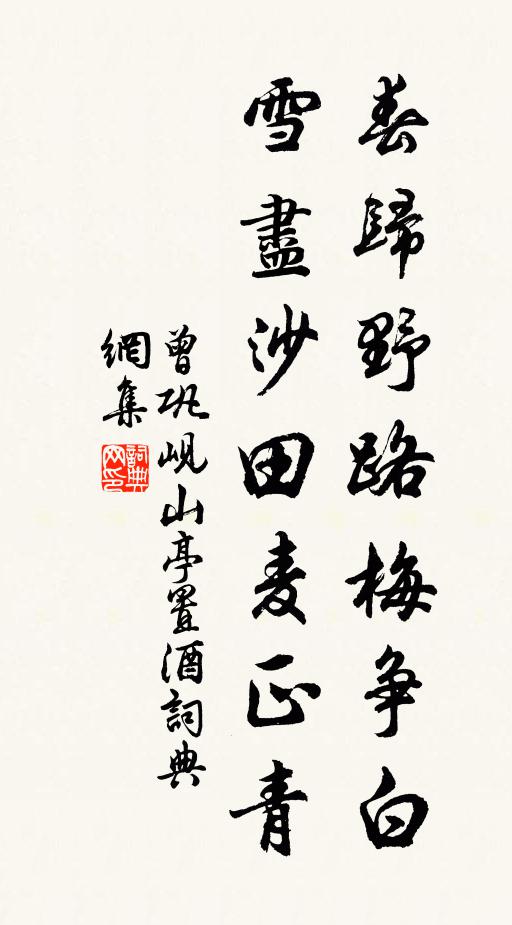 春歸野路梅争白
雪盡沙田麦正青
曾巩峴山亭置酒詞典
網集
詞典
网印